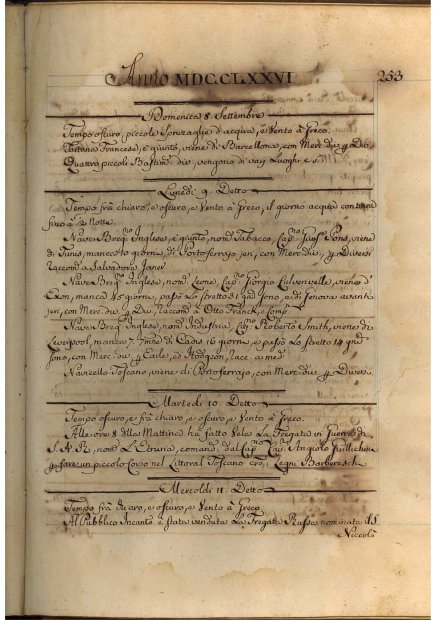 Anno MDCCLXXVI 253
Domenica 8. Settembre
Tempo oscuro, piccole Spruzaglie d'acqua, e Vento à Greco.
Tartana Francesa, è giunto, viene di Barcellona, con Merc. div. p Div.
Quattro piccoli Bastim. div. vengono di varj Luoghi e
Lunedi 9. Detto
Tempo frà chiaro, e oscuro, e Vento à Greco, il giorno acqua continua
fino à 2 Notte.
Nave Breg.no Inglese, è giunto, nom. Tabaco, Cap.no Pons, viene
di Tunis, manca giorni, di Portoferrajo, jeri, con Merc. div. p Diversi
Raccom. a Salvadore
Nave Breg.no Inglese, nom. Leone, Cap.no Giorgio viene d'
manca 45 giorni, passò lo Stretto 31 e di Genova avanti
jeri, con Merc. div. p Div. Raccom. a Otto Franck, e Comp.
Nave Breg.no Inglese, nom. Industria Cap.no Roberto Smith, viene di
Liverpool, manca 7 di Cadis 16 giorni, e passò lo Stretto 14
sono, con Merc. div. p Earle, e Hodgson, Racc. a med.
Navicello Toscano, viene di Portoferrajo, con Merc. div. p Diversi
Martedi 10. Detto
Tempo oscuro, e frà chiaro, e oscuro, e Vento à Greco.
Alle ore 8 della Mattina hà fatto Vela La Fregata in Guerra di
S.A.R. nom. L'Etruria, comand. dal Cap. Cav. Angiolo
p fare un piccolo Corso nel Littoral Toscano cro. i Legni Barbereschi
Mercoldi 11. Detto
Tempo frà chiaro, e oscuro, e Vento à Greco
Al Pubblico Incanto è stata venduta La Fregata Russa nominata il S.
Niccolà